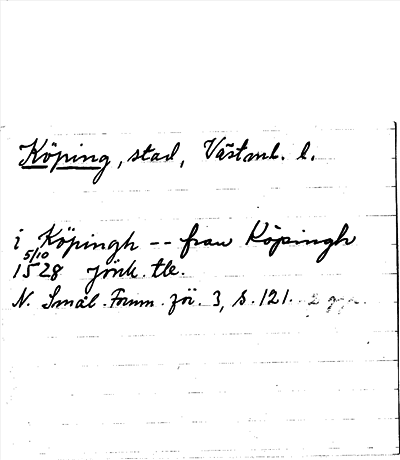 Köping, stad, Västml. l.
i Köpingh -- fraw Köpingh
5/10
1528 Jönk. tle.
N. Smål. Fornm. för. 3, s. 121. 2 ggr.